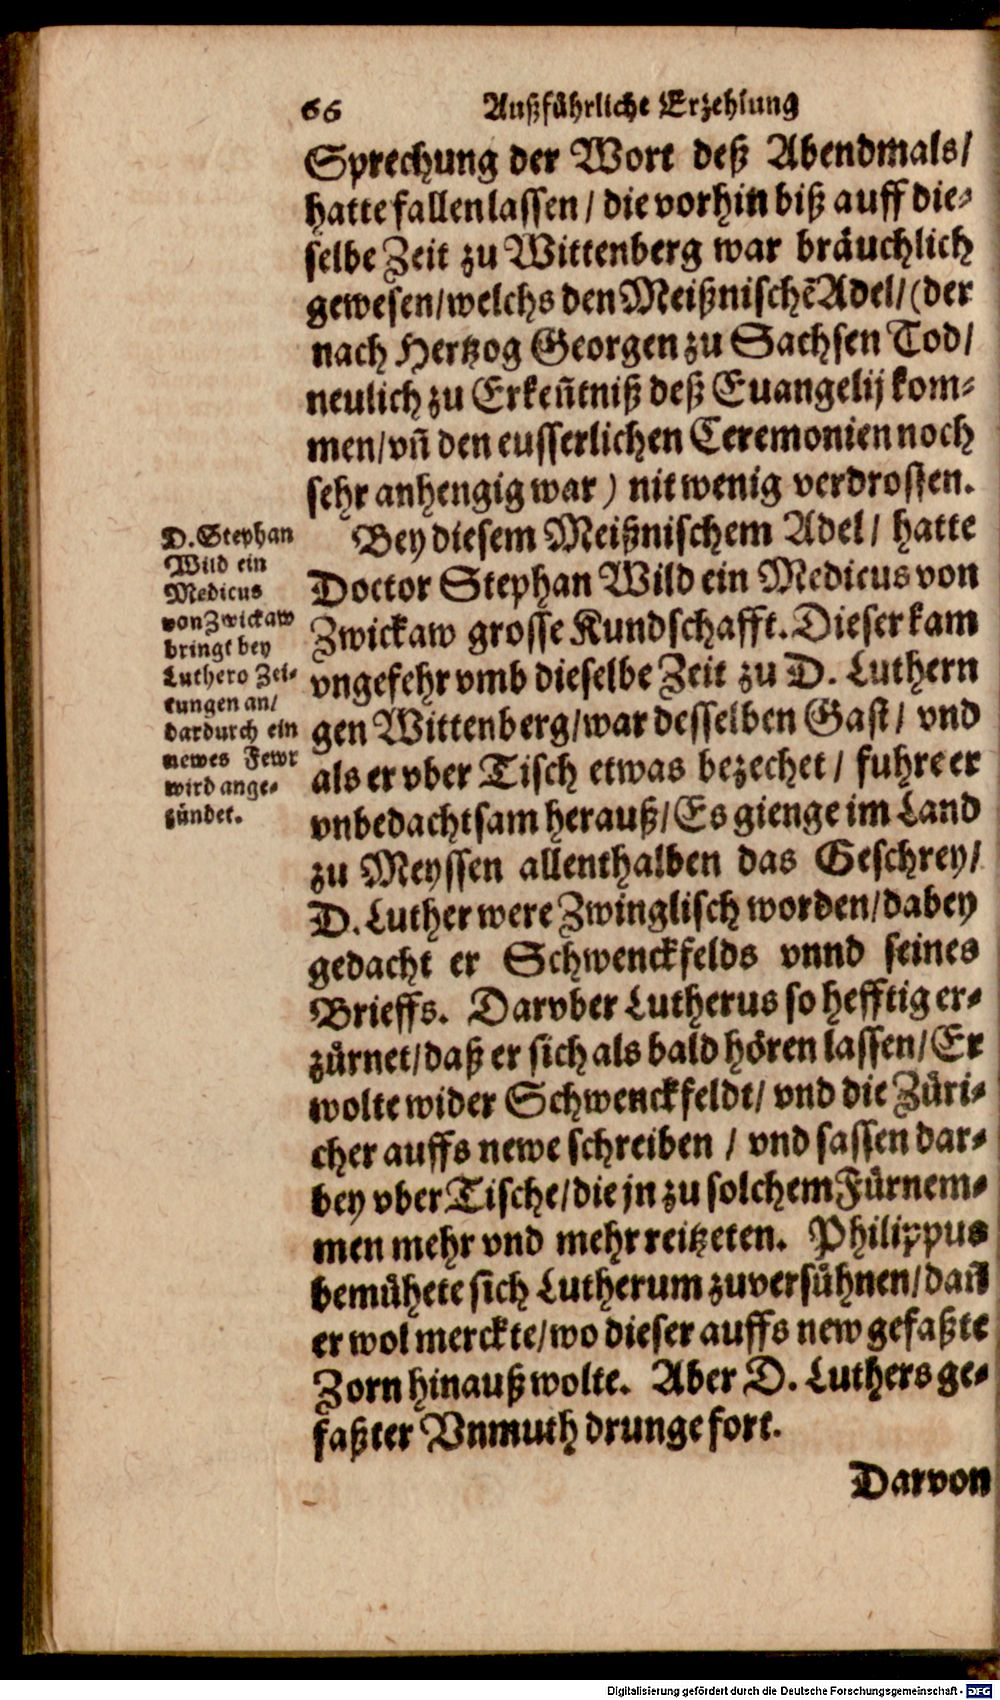 66 Außführliche Erzehlung
Sprechung der Wort deß Abendmals/
hatte fallen lassen / die vorhin biß auff die-
selbe Zeit zu Wittenberg war bräuchlich
gewesen/welchs den Meißnischẽ Adel/ (der
nach Hertzog Georgen zu Sachsen Tod/
neulich zu Erkeñtniß deß Euangelij kom-
men/vñ den eusserlichen Ceremonien noch
sehr anhengig war) nit wenig verdrossen.
Bey diesem Meißnischem Adel / hatte
Doctor Stephan Wild ein Medicus von
Zwickaw grosse Kundschafft. Dieser kam
vngefehr vmb dieselbe Zeit zu D. Luthern
gen Wittenberg/war desselben Gast/ vnd
als er vber Tisch etwas bezechet / fuhre er
vnbedachtsam herauß/Es gienge im Land
zu Meyssen allenthalben das Geschrey/
D. Luther were Zwinglisch worden/dabey
gedacht er Schwenckfelds vnnd seines
Brieffs. Darvber Lutherus so hefftig er-
zürnet/daß er sich als bald hören lassen/Er
wolte wider Schwenckfeldt/ vnd die Züri-
cher auffs newe schreiben / vnd sassen dar-
bey vber Tische/die jn zu solchem Fürnem-
men mehr vnd mehr reitzeten. Philippus
bemühete sich Lutherum zuversühnen/dañ
er wol merckte/wo dieser auffs new gefaßte
Zorn hinauß wolte. Aber D. Luthers ge-
faßter Vnmuth drunge fort.
Darvon
D. Stephan
Wild ein
Medicus
von Zwickaw
bringt bey
Luthero Zei-
tungen an/
dardurch ein
newes Fewr
wird ange-
zündet.
Digitalisierung gefördert durch die Deutsche Forschungsgemeinschaft - DFG